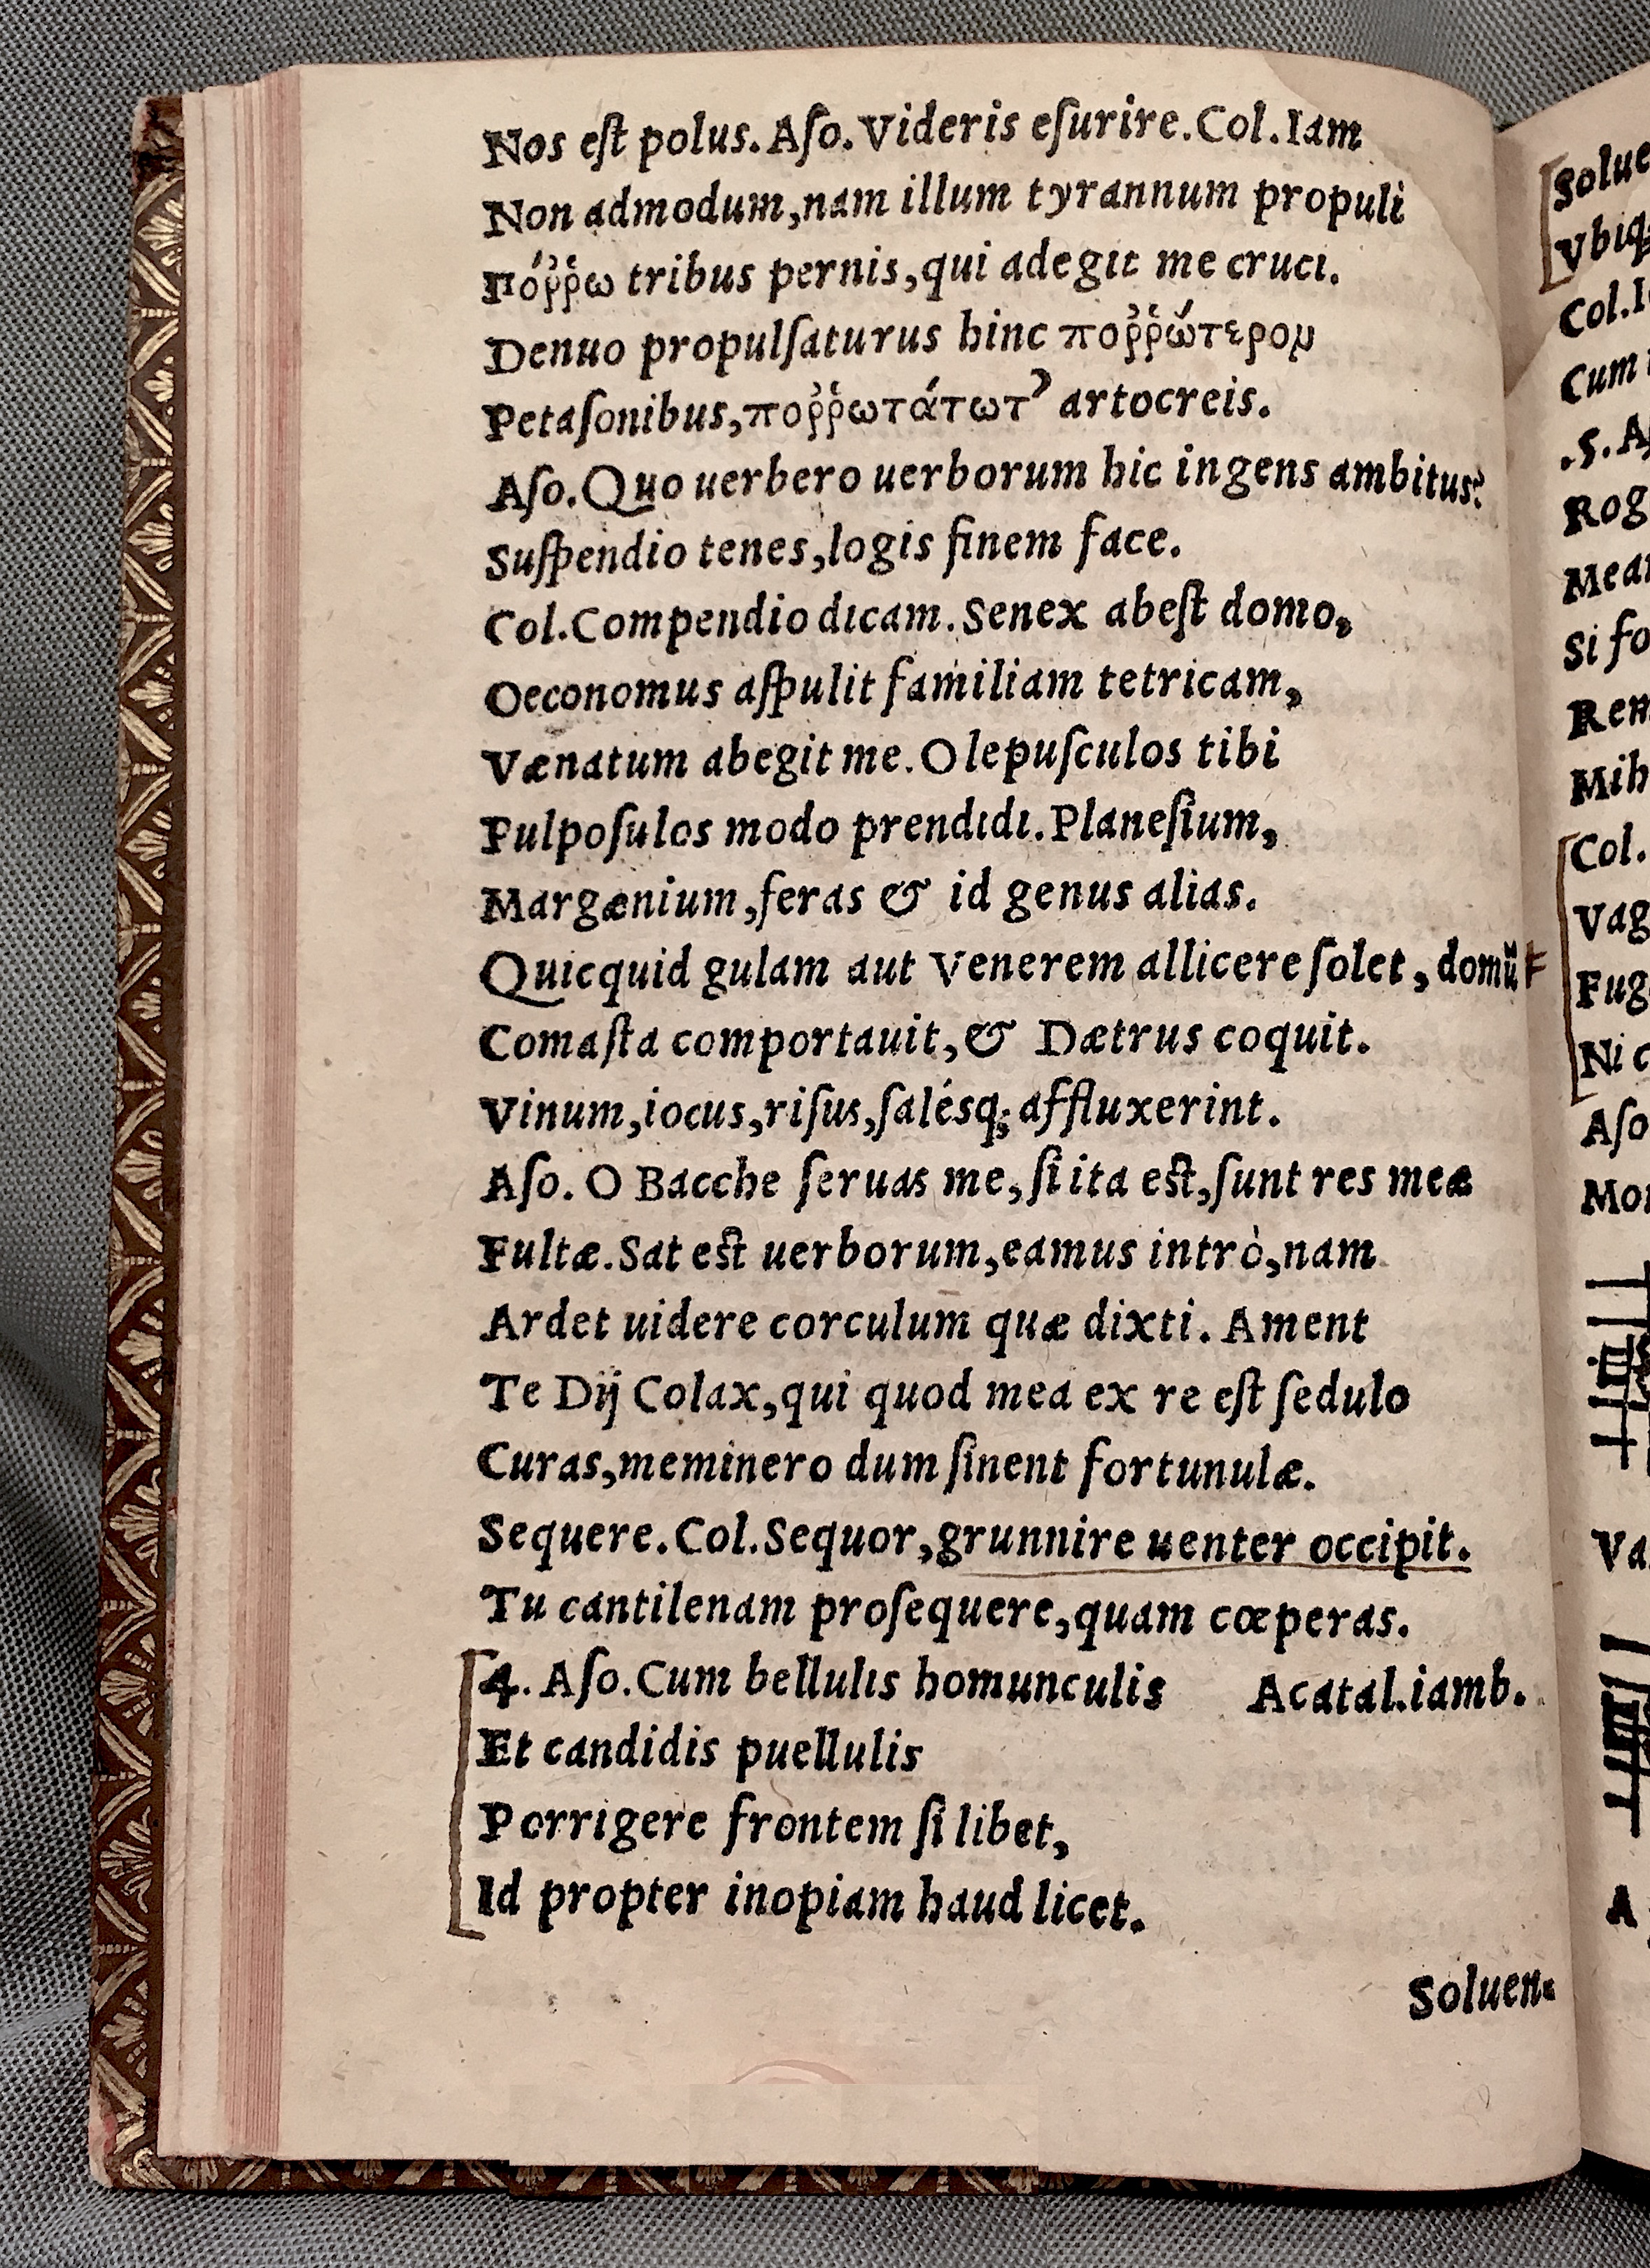 Nos eſt polus. Aſo. Videris eſurire. Col. Iam
Non admodum, nam illum tyrannum propuli
Πόῤῥω tribus pernis, qui adegit me cruci.
Denuo propulſaturus hinc ποῤῥώτερομ
Petaſonibus, ποῤῥωτάτωτ᾽ artocreis.
Aſo. Quo uerbero uerborum hic ingens ambitus?
Suſpendio tenes, logis finem face.
Col. Compendio dicam. Senex abeſt domo,
Oeconomus aſpulit familiam tetricam,
Vænatum abegit me. O lepuſculos tibi
Pulpoſulos modo prendidi. Planeſium,
Margænium, feras & id genus alias.
Quicquid gulam aut Venerem allicere ſolet, domū
Comaſta comportauit, & Dætrus coquit.
Vinum, iocus, riſus, ſalésq; affluxerint.
Aſo. O Bacche ſeruas me, ſi ita eſt, ſunt res meæ
Fultæ. Sat eſt uerborum, eamus intrò, nam
Ardet uidere corculum quæ dixti. Ament
Te Dij Colax, qui quod mea ex re eſt ſedulo
Curas, meminero dum ſinent fortunulæ.
Sequere. Col. Sequor, grunnire uenter occipit.
Tu cantilenam proſequere, quam cœperas.
4. Aſo. Cum bellulis homunculis Acatal. iamb.
Et candidis puellulis
Porrigere frontem ſi libet,
Id propter inopiam haud licet.
Soluen-
Solue
Vbiq;
Col. I
Cum
.5. A
Rog
Mea
Si fo
Rem
Mih
Col.
Vag
Fug
Ni c
Aſo
Mor
Va
A